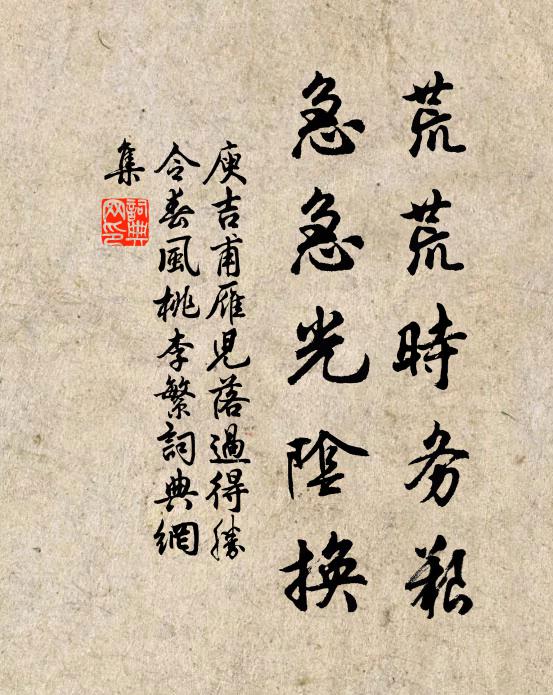 荒荒時务艱
急急光陰換
庾吉甫雁児落過得勝
令春風桃李繁詞典網
集
詞典
网印